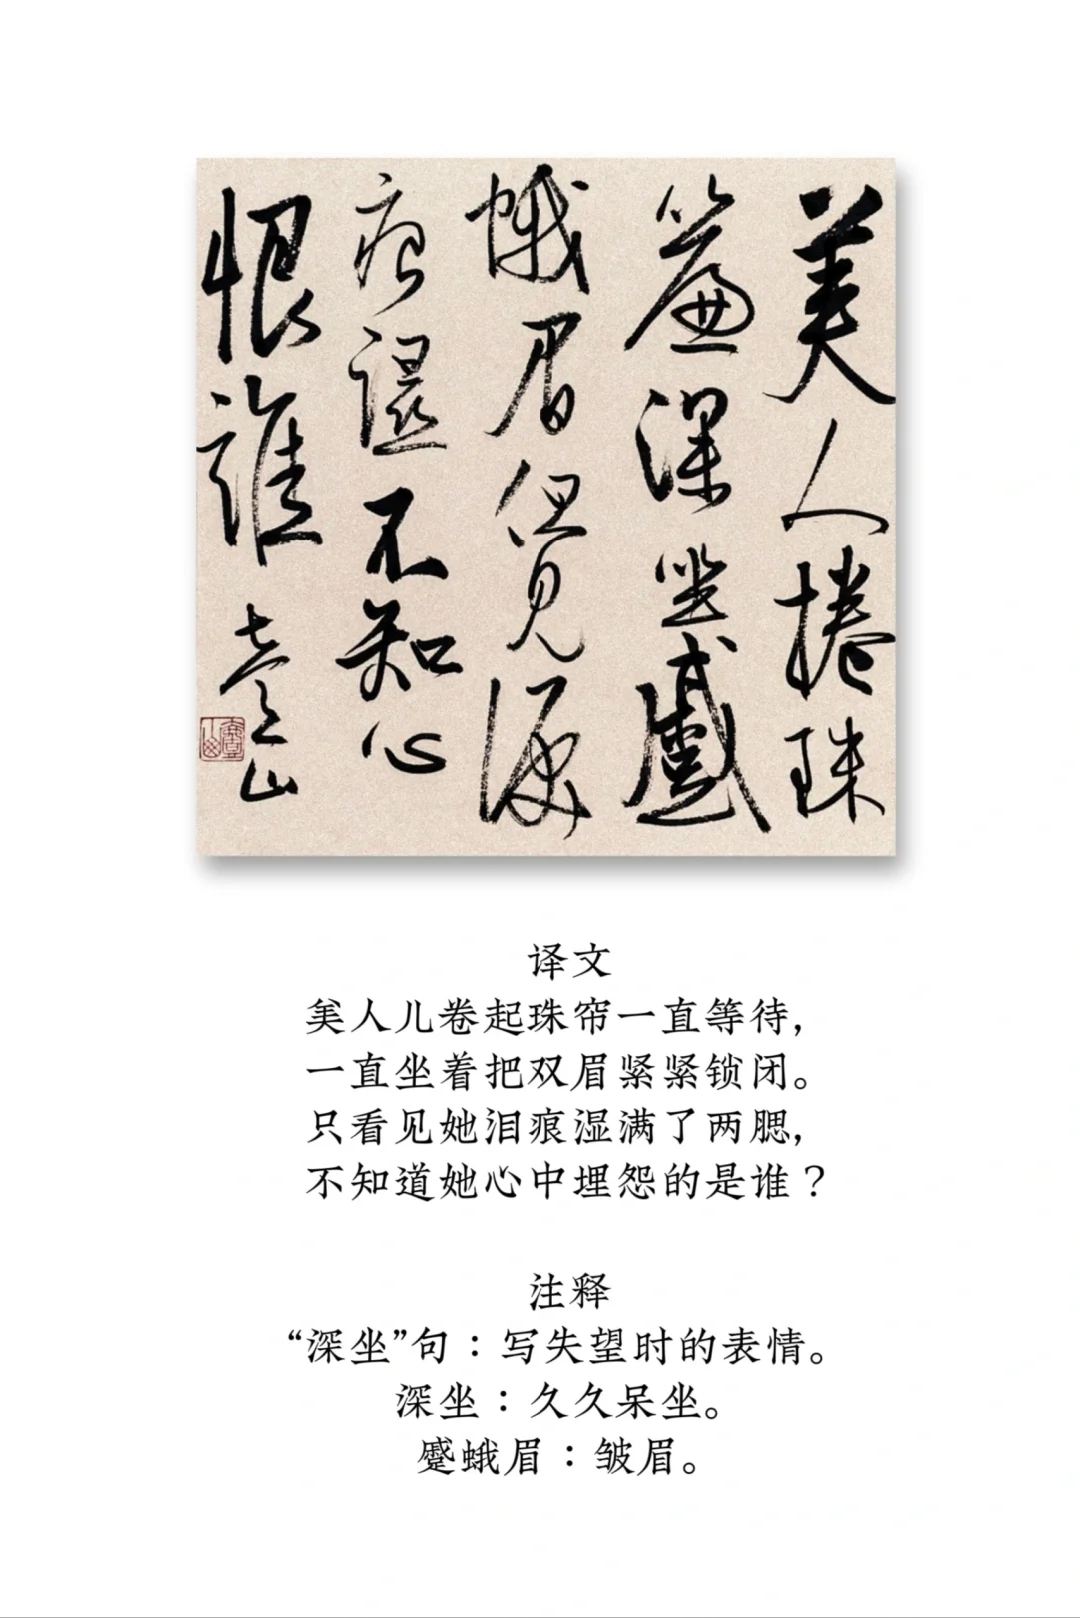 美人捲珠
簾深坐蹙
蛾眉但見淚
痕濕不知心
恨誰
译文
美人儿卷起珠帘一直等待，
一直坐着把双眉紧紧锁闭。
只看见她泪痕湿满了两腮，
不知道她心中埋怨的是谁？
注释
“深坐”句：写失望时的表情。
深坐：久久呆坐。
蹙蛾眉：皱眉。